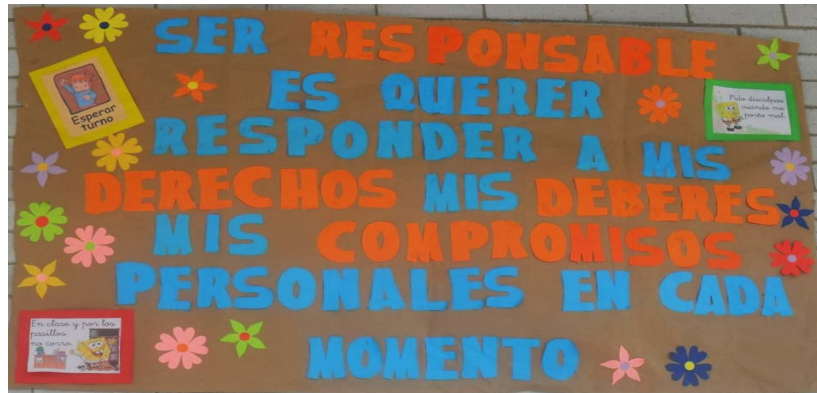 SER RESPONSABLE
ES QUERER
RESPONDER A MIS
DERECHOS MIS DEBERES
MIS COMPROMISOS
PERSONALES EN CADA
MOMENTO
Esperar
turno
Pido disculpas
cuando me
porto mal.
En clase y por los
pasillos
no corro.